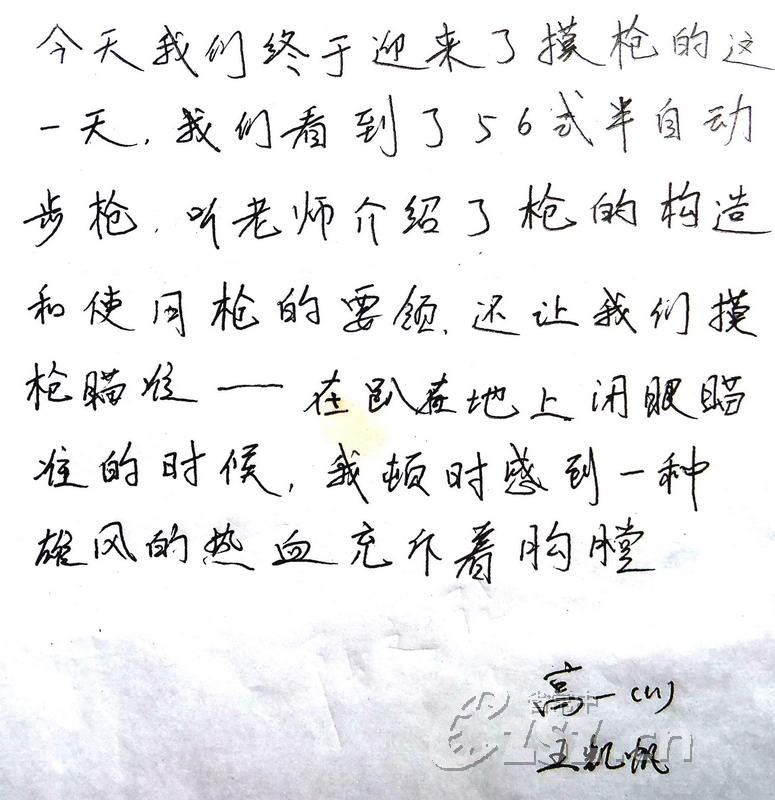 今天我们终于迎来了摸枪的这
一天，我们看到了56式半自动
步枪，听老师介绍了枪的构造
和使用枪的要领，还让我们摸
枪瞄准——在趴在地上闭眼瞄
准的时候，我顿时感到一种
雄风的热血充斥着胸膛
高一(11)
王凯帆